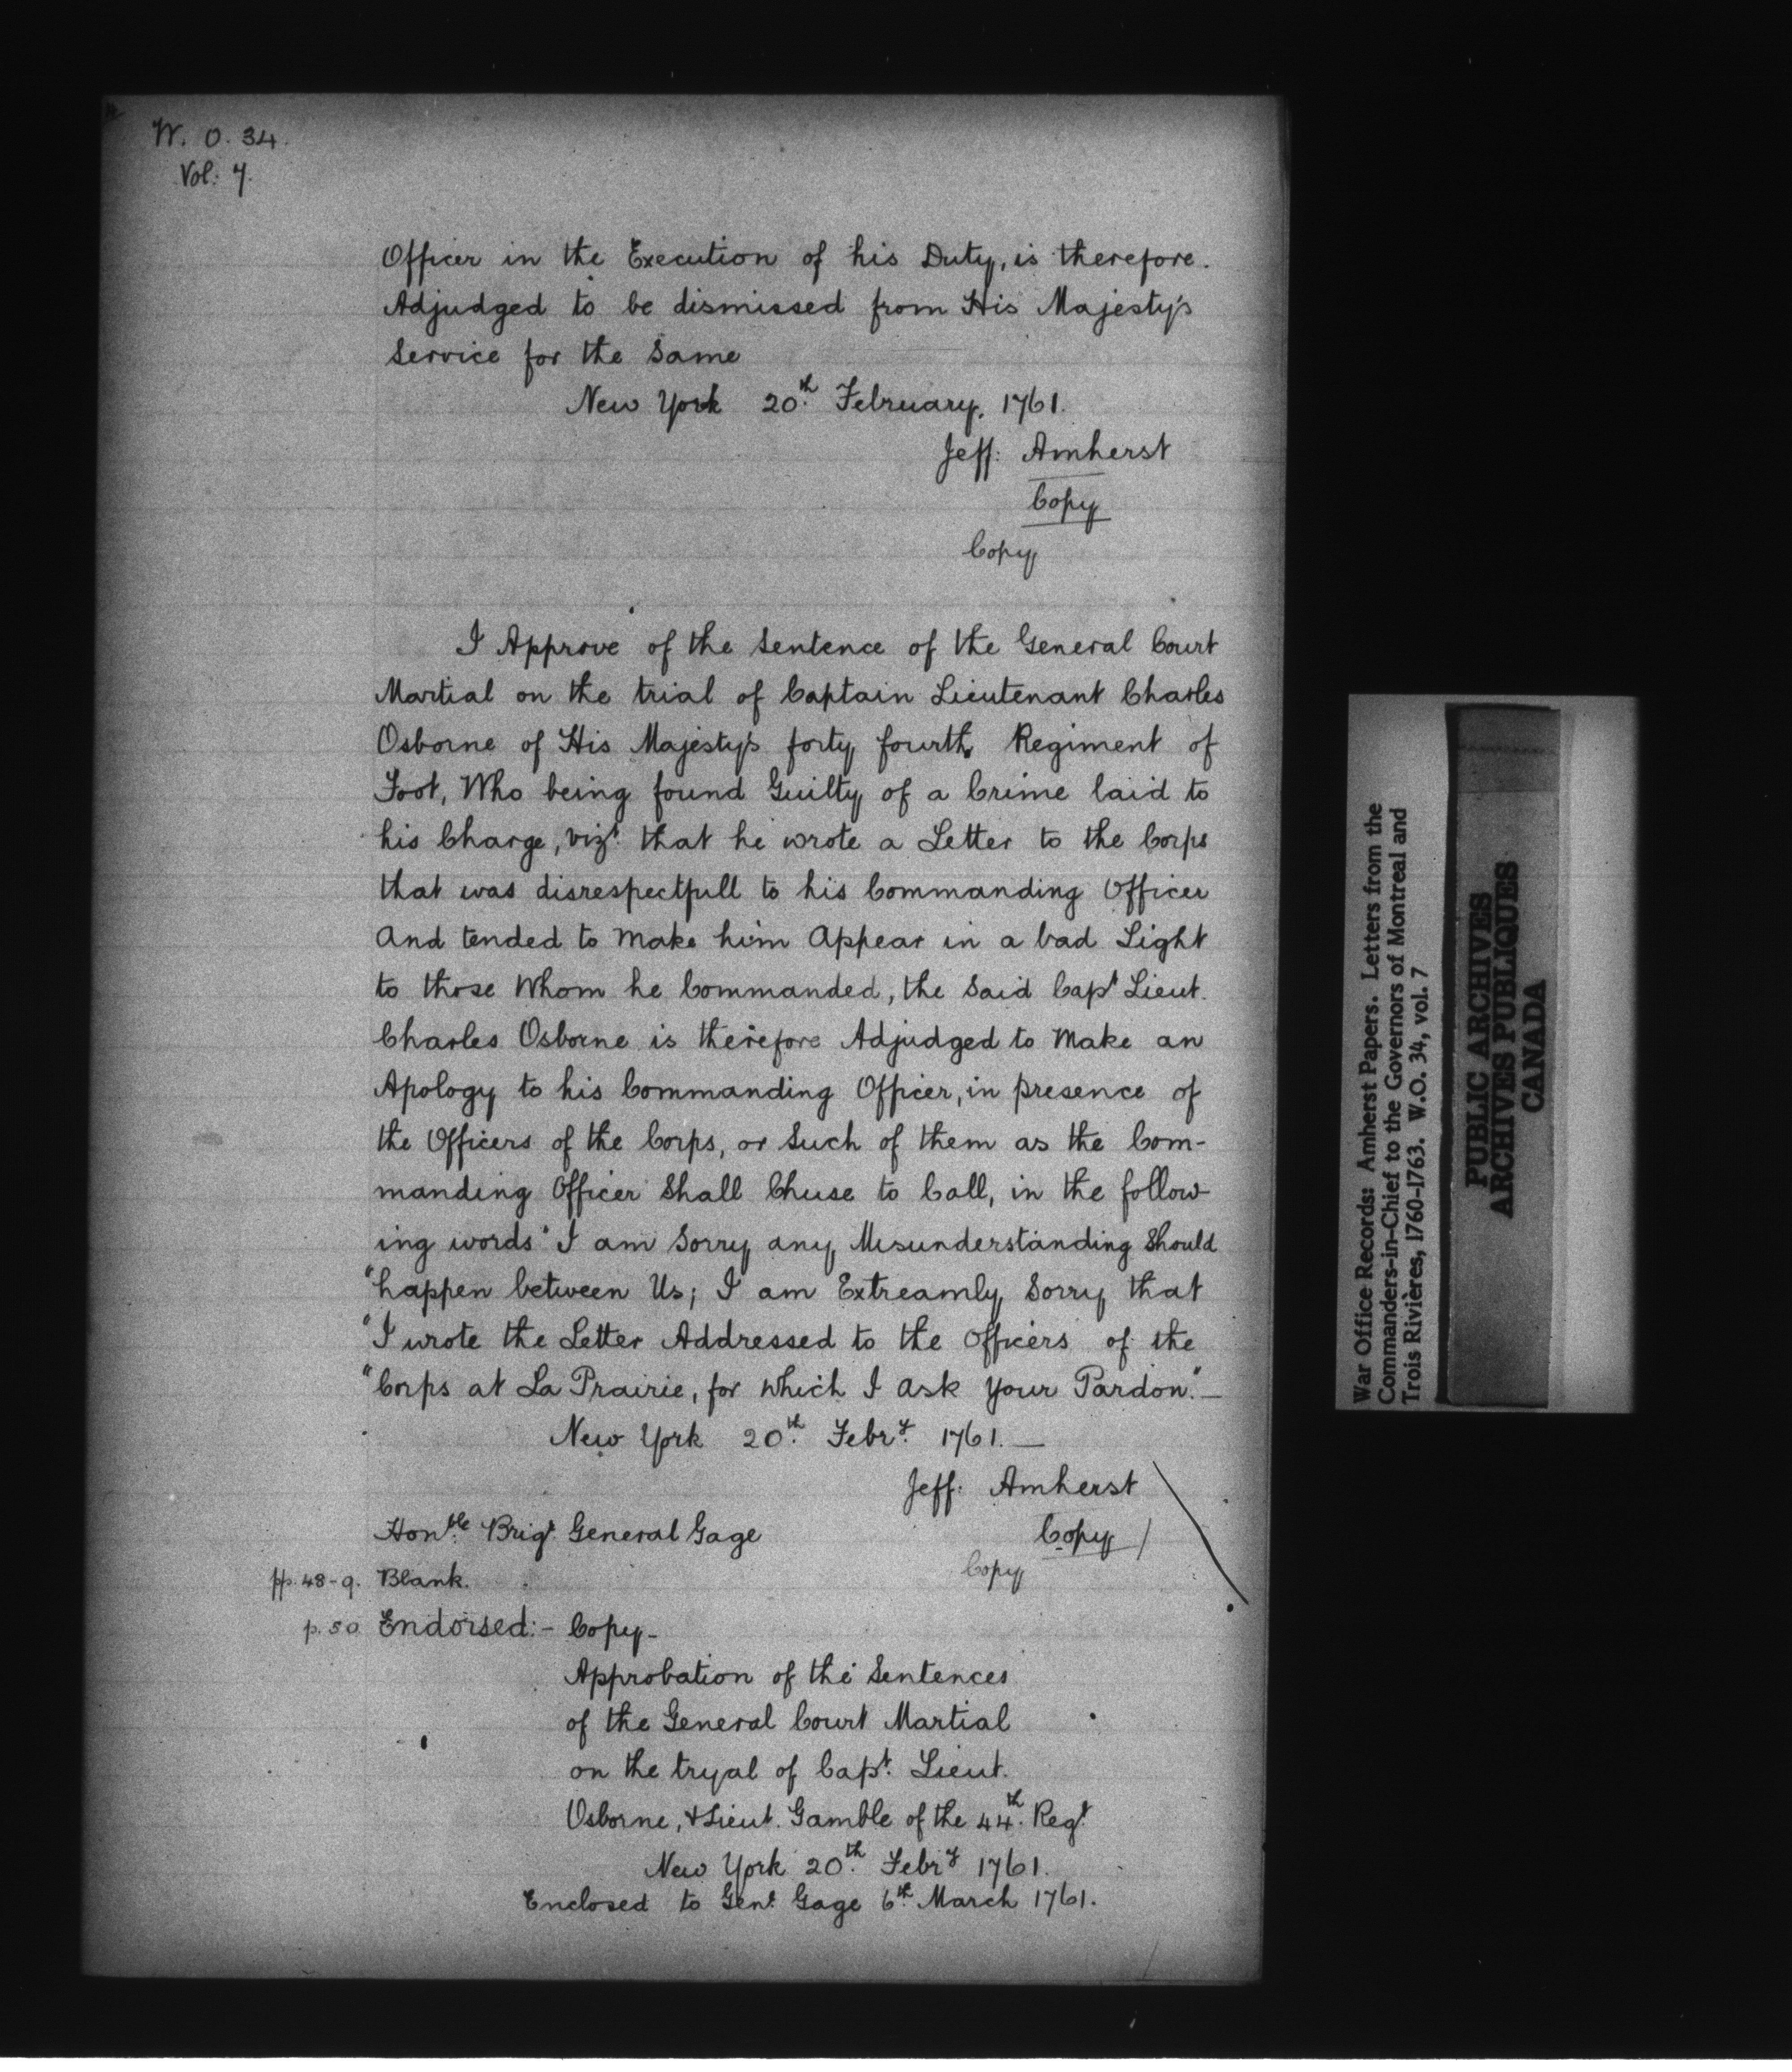 W. O. 34.
Vol: 7.
Officer in the Execution of his Duty, is therefore.
Adjudged to be dismissed from His Majesty's
Service for the Same
New York 20th. February, 1761.
Jeff: Amherst
Copy
Copy
I Approve of the Sentence of the General Court
Martial on the trial of Captain Lieutenant Charles
Osborne of His Majesty's forty fourth Regiment of
Foot, Who being found Guilty of a Crime laid to
his Charge, vizt. that he wrote a Letter to the Corps
that was disrespectfull to his Commanding Officer
And tended to Make him Appear in a bad Light
to those Whom he Commanded, the Said Capt Lieut.
Charles Osborne is therefore Adjudged to Make an
Apology to his Commanding Officer, in presence of
the Officers of the Corps, or Such of them as the Com-
manding Officer Shall Chuse to Call, in the follow-
ing words "I am Sorry any Misunderstanding Should
"happen between Us; I am Extreamly Sorry that
"I wrote the Letter Addressed to the Officers of the
"Corps at La Prairie, for which I ask your Pardon."—
New York 20th. Febry. 1761.—
Jeff: Amherst
Copy
Honble. Brigr. General Gage
Copy
pp. 48-9. Blank.
p. 50 Endorsed:- Copy-
Approbation of the Sentences
of the General Court Martial
on the tryal of Capt. Lieut.
Osborne, & Lieut. Gamble of the 44th. Regt.
New York 20th. Febry 1761.
Enclosed to Genl. Gage 6th. March 1761.
War Office Records: Amherst Papers. Letters from the
Commanders-in-Chief to the Governors of Montreal and
Trois Rivières, 1760-1763. W.O. 34, vol. 7
PUBLIC ARCHIVES
ARCHIVES PUBLIQUES
CANADA